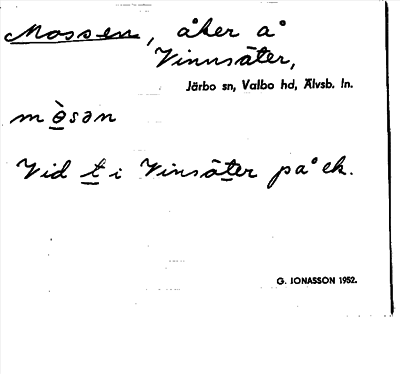 Mossen, åker å
Vinnsäter,
Järbo sn, Valbo hd, Älvsb. ln.
mòsən
Vid t i Vinsäter på ek.
G. JONASSON 1952.